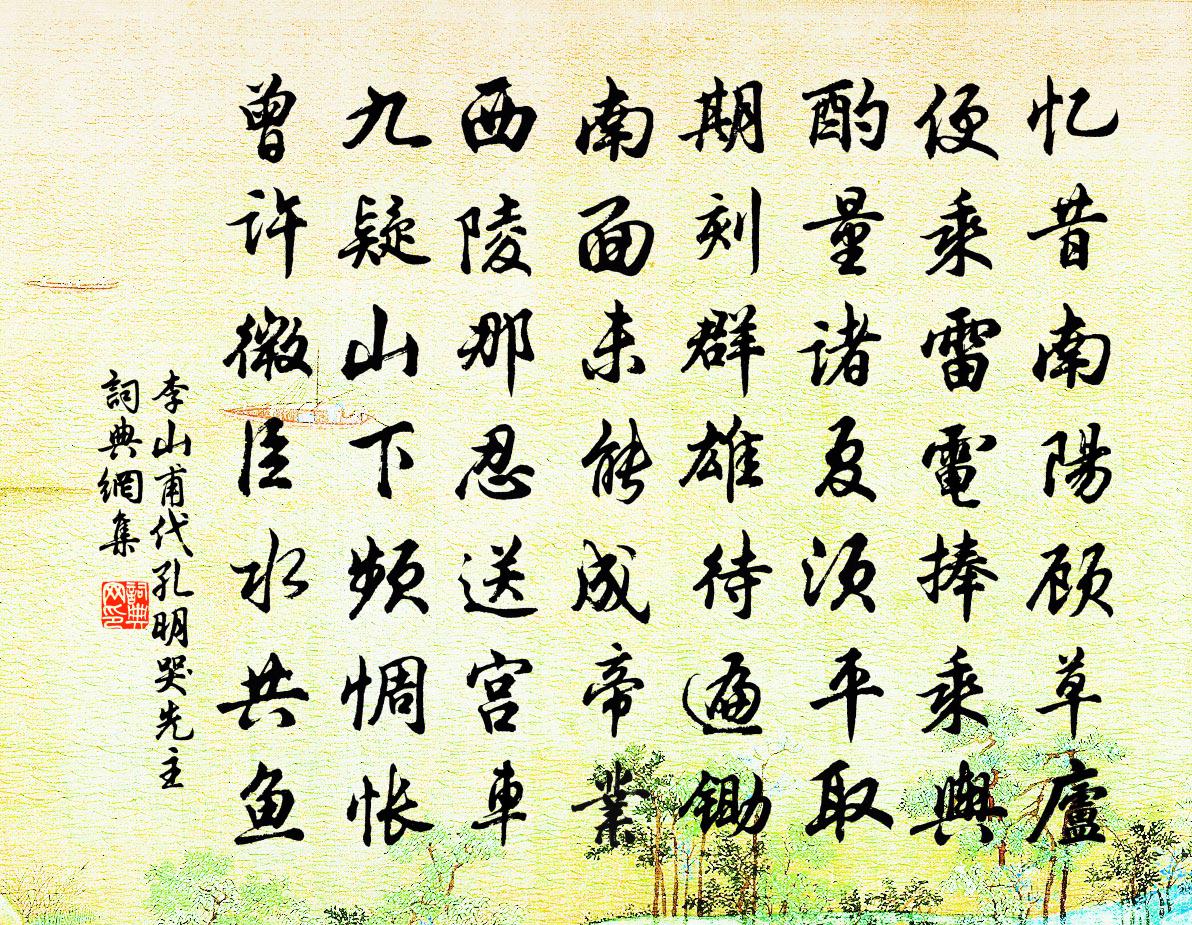 忆昔南陽顾草廬
便乘雷電捧乘輿
酌量诸夏须平取
期刻群雄待遍鋤
南面未能成帝業
西陵那忍送宫車
九疑山下频惆怅
曾许微臣水共鱼
李山甫代孔明哭先主
詞典網集
詞典网印